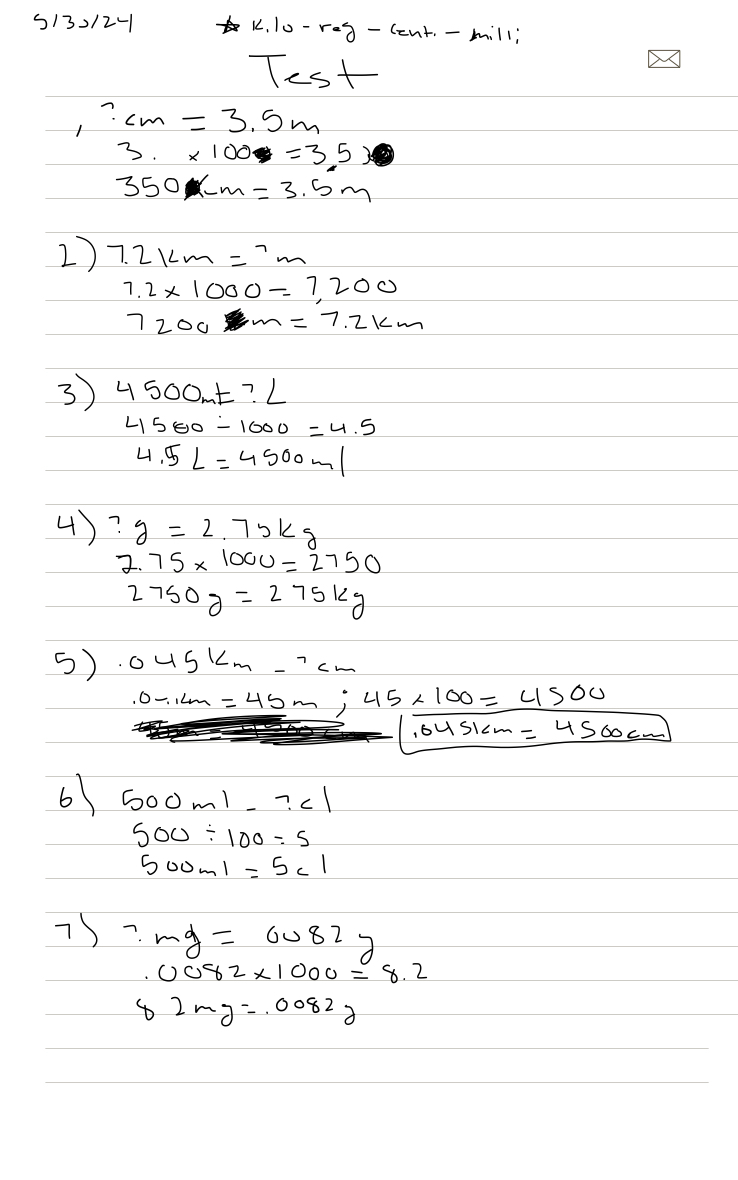 5/30/24 ☆ Kilo - reg - Cent. - milli
Test
, ? cm = 3.5m
3. x 100 = 3.5
350 cm = 3.5m
2) 7.2 Km = ? m
7.2 x 1000 = 7,200
7200 m = 7.2 Km
3) 4500mL ? L
4500 ÷ 1000 = 4.5
4.5 L = 4500 ml
4) ? g = 2.75kg
2.75 x 1000 = 2750
2750 g = 275kg
5) .045 Km = ? cm
.04.km = 45 m ; 45 x 100 = 4500
.045km = 4500cm
6) 500 ml = ? cl
500 ÷ 100 = 5
500ml = 5 cl
7) ? mg = 0082 g
.0082 x 1000 = 8.2
8 2 mg = .0082 g